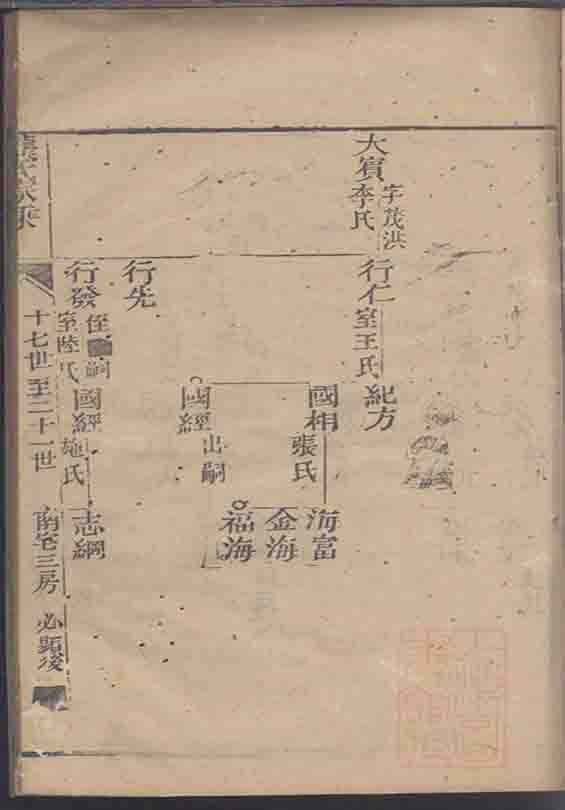 大賓
字茂洪
李氏
行仁
室王氏
紀方
國相
張氏
海富
金海
福海
國經
出嗣
行先
行發
侄
嗣
室陸氏
國經
施氏
志綱
氏家乘
十七世至二十一世
南宅三房
必顯後